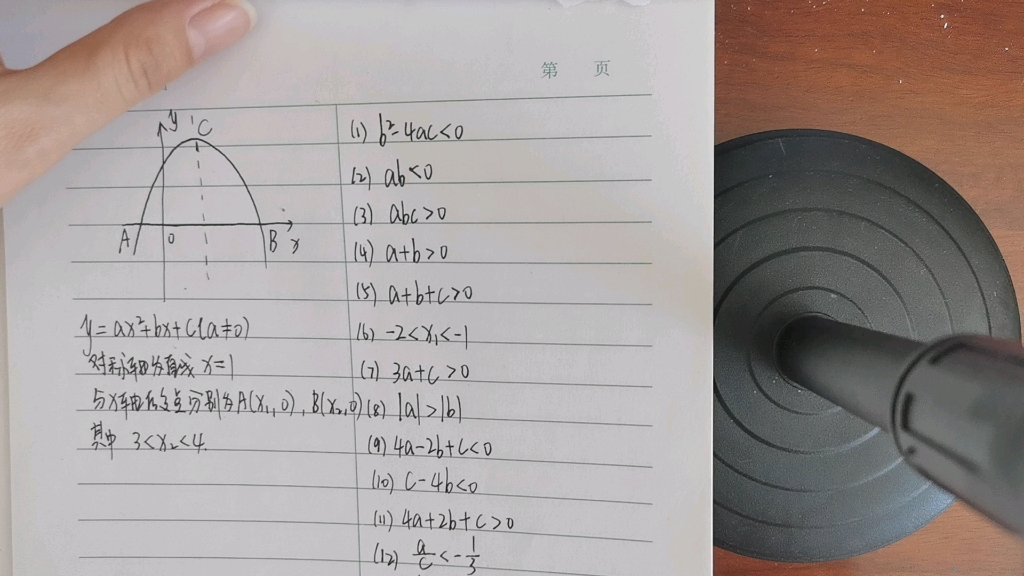 第 页
y
C
A
0
B
x
y=ax²+bx+c(a≠0)
对称轴为直线 x=1
与x轴的交点分别为A(x₁,0), B(x₂,0)
其中 3<x₂<4.
(1) b²-4ac<0
(2) ab<0
(3) abc>0
(4) a+b>0
(5) a+b+c>0
(6) -2<x₁<-1
(7) 3a+c>0
(8) |a|>|b|
(9) 4a-2b+c<0
(10) c-4b<0
(11) 4a+2b+c>0
(12) a/c<-1/3